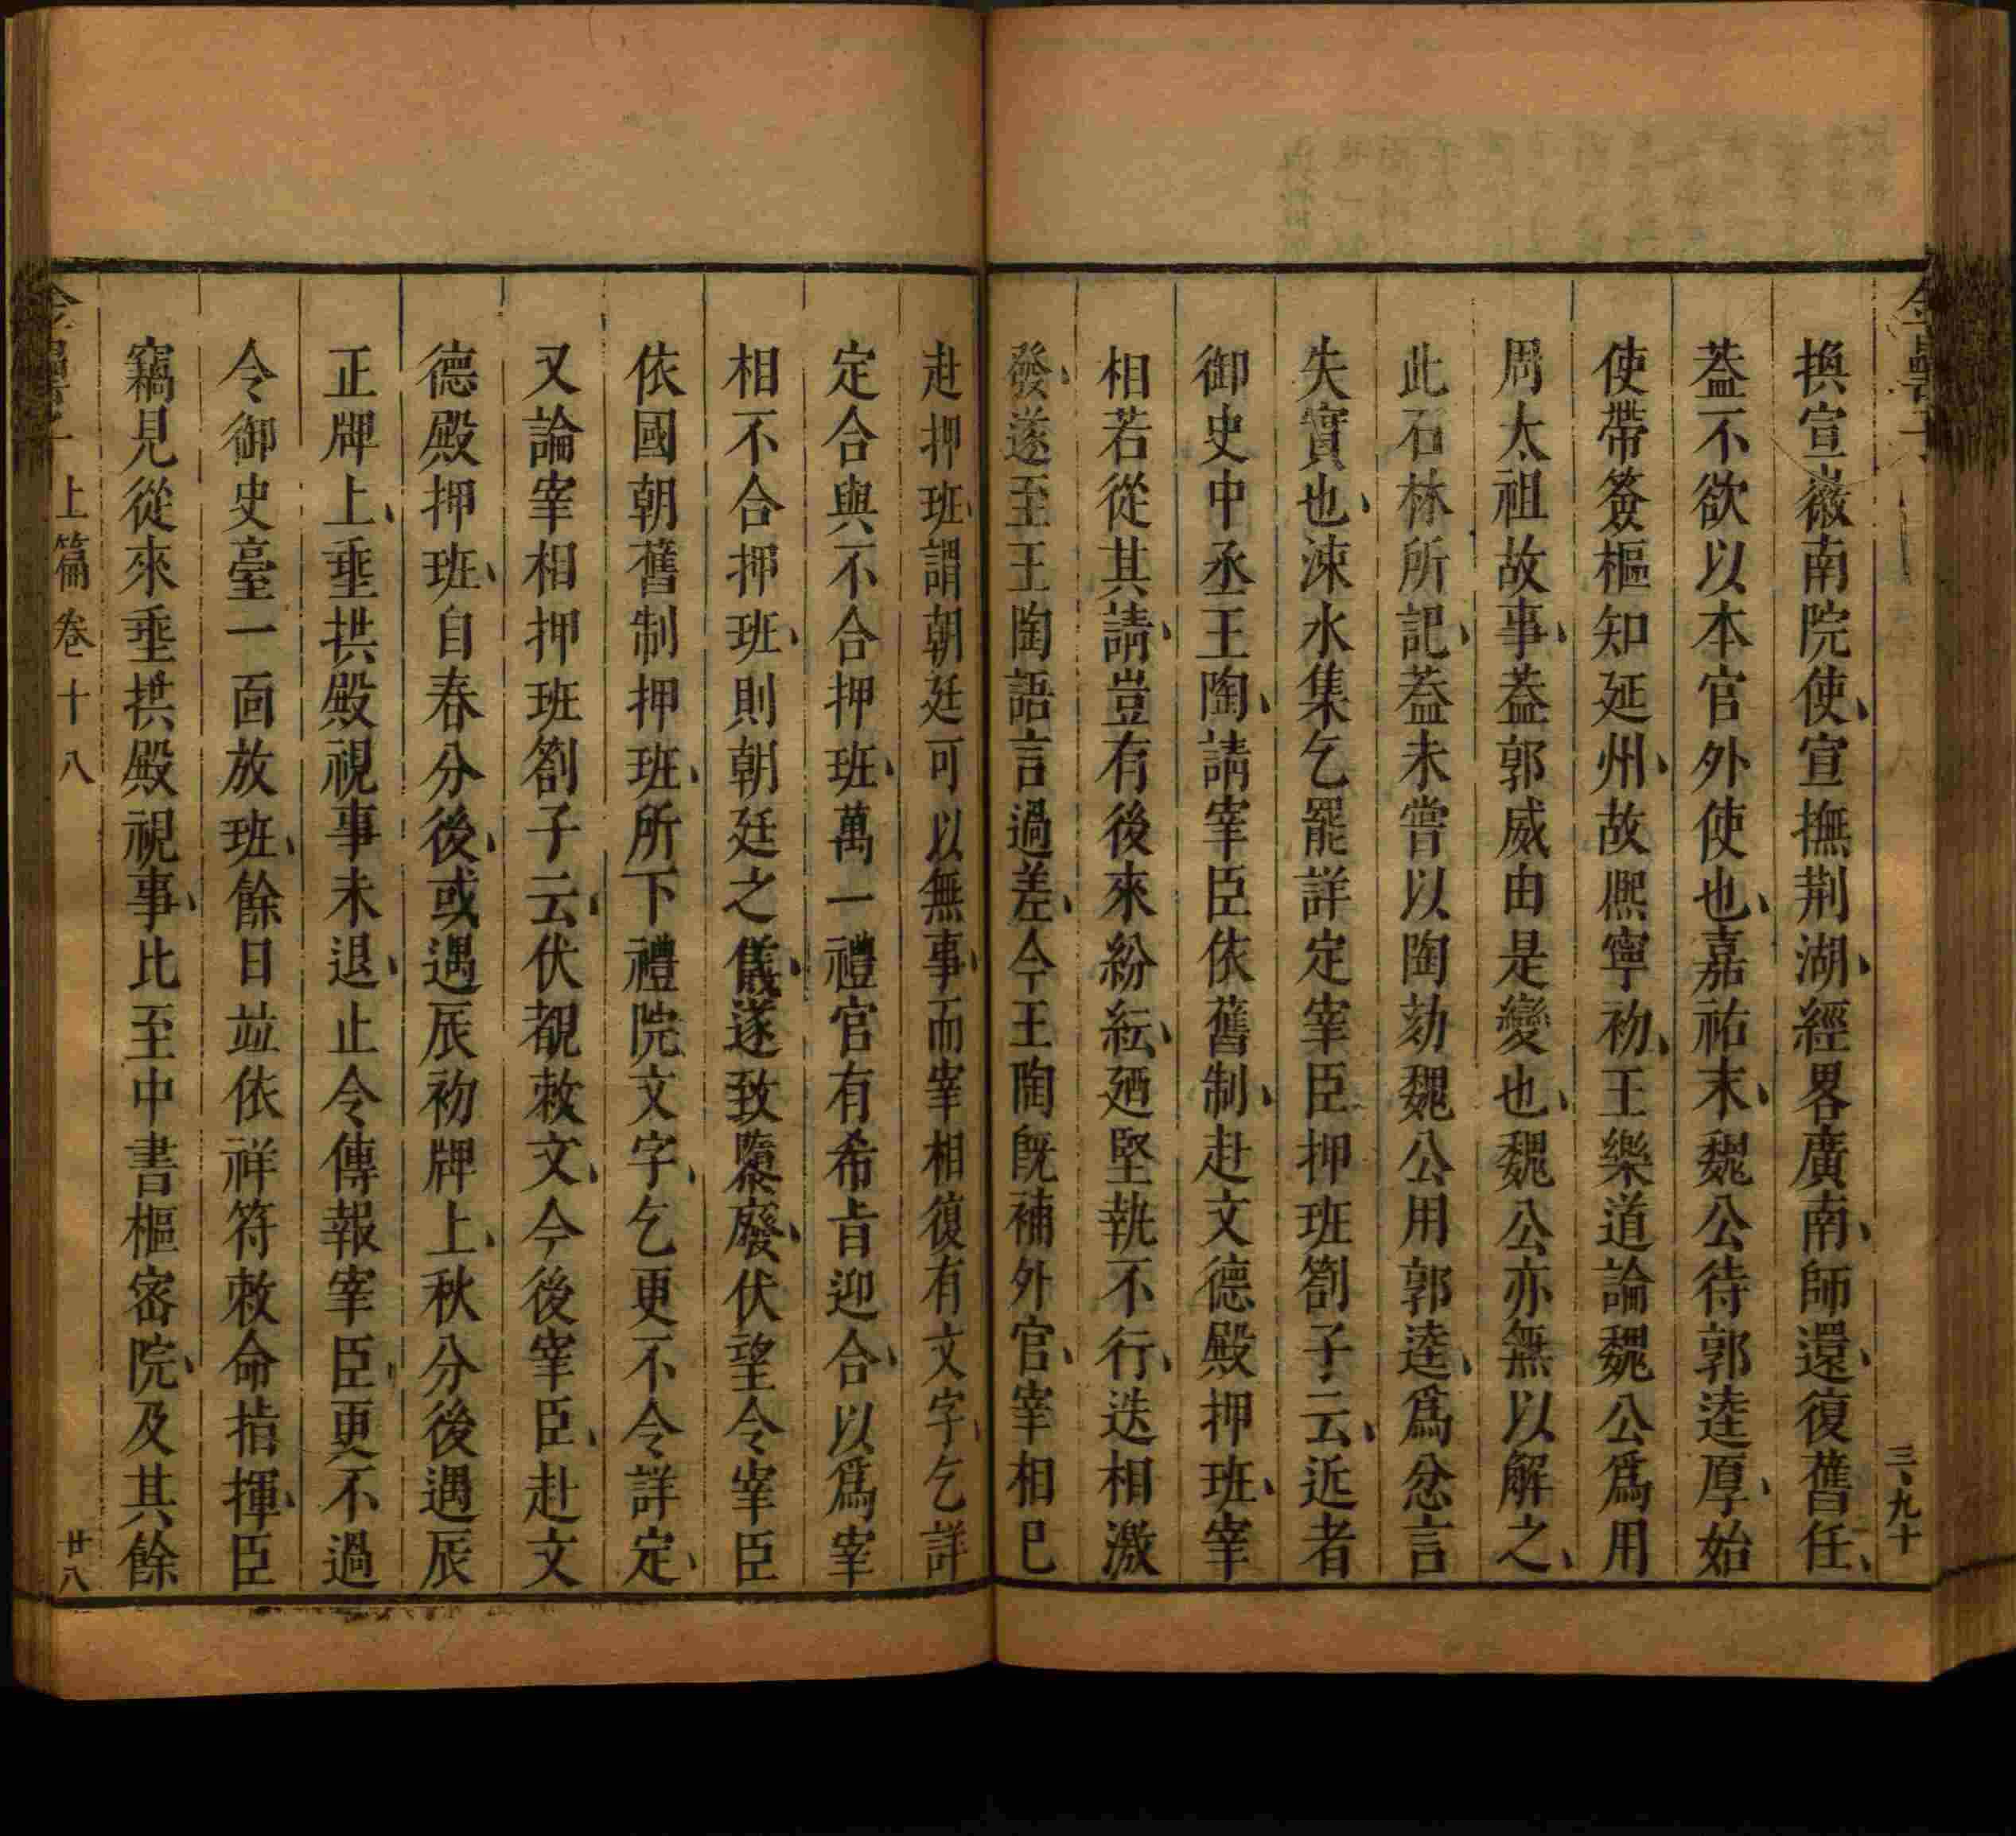 換宣薇南院使、宣撫荆湖、經畧廣南、師還、復舊任、
葢不欲以本官外使也、嘉祐末、魏公待郭逵厚、始
使帶簽樞知延州、故熈寧初、王樂道論魏公爲用
周太祖故事、葢郭威由是變也、魏公亦無以解之、
此石林所記、葢未嘗以陶劾魏公用郭逵、爲忿言
失實也、涑水集乞罷詳定宰臣押班劄子云、近者
御史中丞王陶、請宰臣依舊制、赴文德殿押班、宰
相若從其請、豈有後來紛紜、廼堅執不行、迭相激
發、遂至王陶語言過差、今王陶旣補外官、宰相巳
赴押班、謂朝廷可以無事、而宰相復有文字、乞詳
定合與不合押班、萬一禮官有希㫖迎合、以爲宰
相不合押班、則朝廷之儀、遂致隳廢、伏望令宰臣
依國朝舊制押班、所下禮院文字、乞更不令詳定、
又論宰相押班劄子云、伏覩敕文、今後宰臣、赴文
德殿押班、自春分後、或遇辰初牌上、秋分後遇辰
正牌上、垂拱殿視事未退、止令傳報宰臣、更不過
令御史臺一面放班、餘日竝依祥符敕命指揮、臣
竊見從來垂拱殿視事、比至中書樞密院、及其餘
上篇卷十八
廿八
三、九十